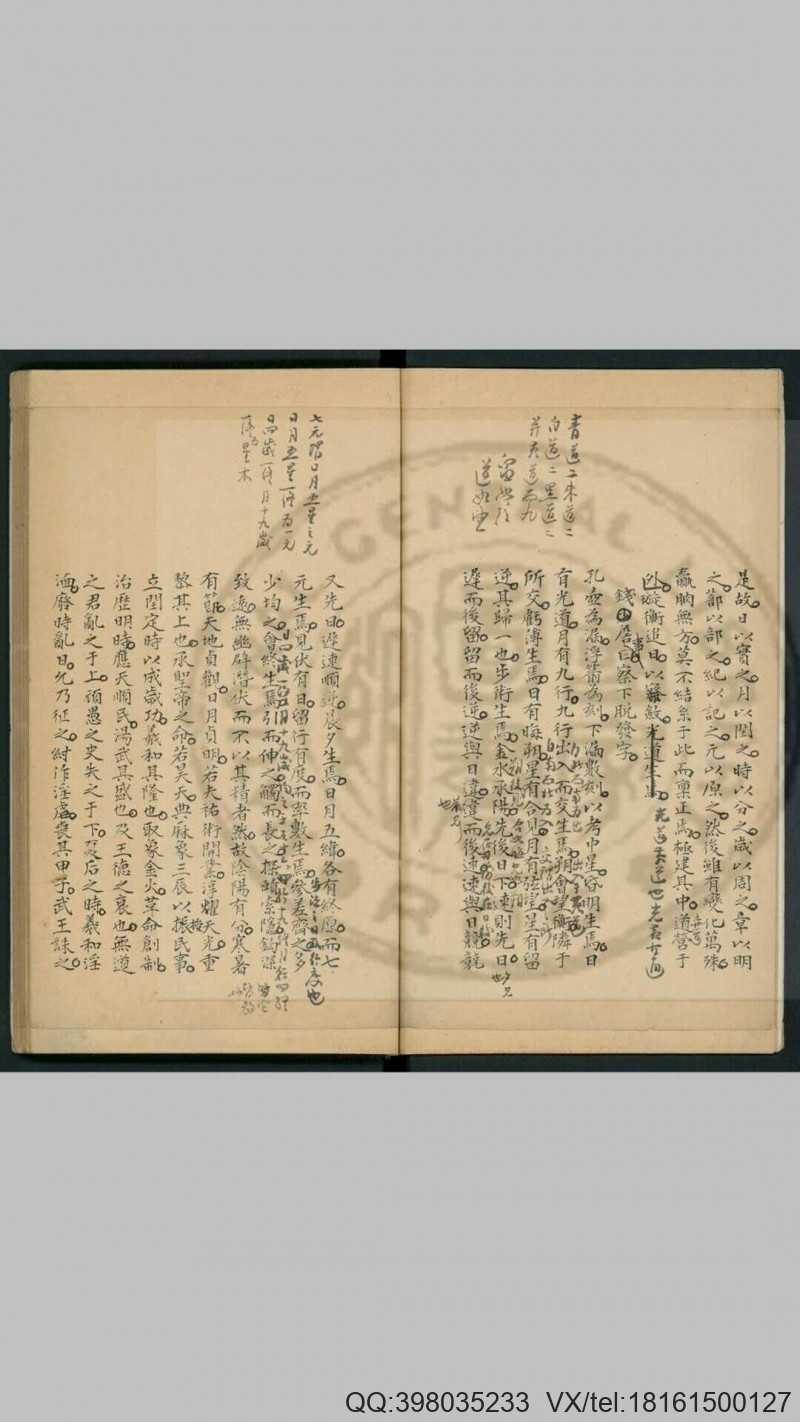 青道二朱道二
白道二黑道二
是故日以實之月以閏之時以分之歲以周之章以明
之蔀以部之紀以記之元以原之然後雖有變化萬殊
贏朒無方莫不結系于此而稟正焉極建其中道營于
外璇衡追日以察發光道生焉
錢曰察下脫發字
孔壺為漏浮箭為刻下漏數刻以考中星昏明生焉日
有光道月有九行九行出入而交生焉朔會望衡隣于
所交虧薄生焉日有晦朔星有合見月有弦望星有留
逆其歸一也步術生焉金水承陽先後日下速則先日
遲而後留留而後逆逆與日違違而後速速與日競競
七元謂日月五星之元
又先日遲速順逆晨夕生焉日月五緯各有終原而七
元生焉見伏有日留行有度而率數生焉參差齊之多
少均之會終生焉引而伸之觸而長之探賾索隱鈎深
致遠無幽辟潛伏而不以其精者然故陰陽有分寒暑
有節天地貞觀日月貞明若夫祐術開業淳耀天光重
黎其上也承聖帝之命若昊天典厤象三辰以授民事
立閏定時以成歲功羲和其隆也取象金火革命創制
治歷明時應天順民湯武其盛也及王德之衰也無道
之君亂之于上頑愚之史失之于下夏后之時羲和淫
湎廢時亂日允乃征之紂作淫虐喪其甲子武王誅之
GENERAL
QQ:398035233 VX/tel:18161500127